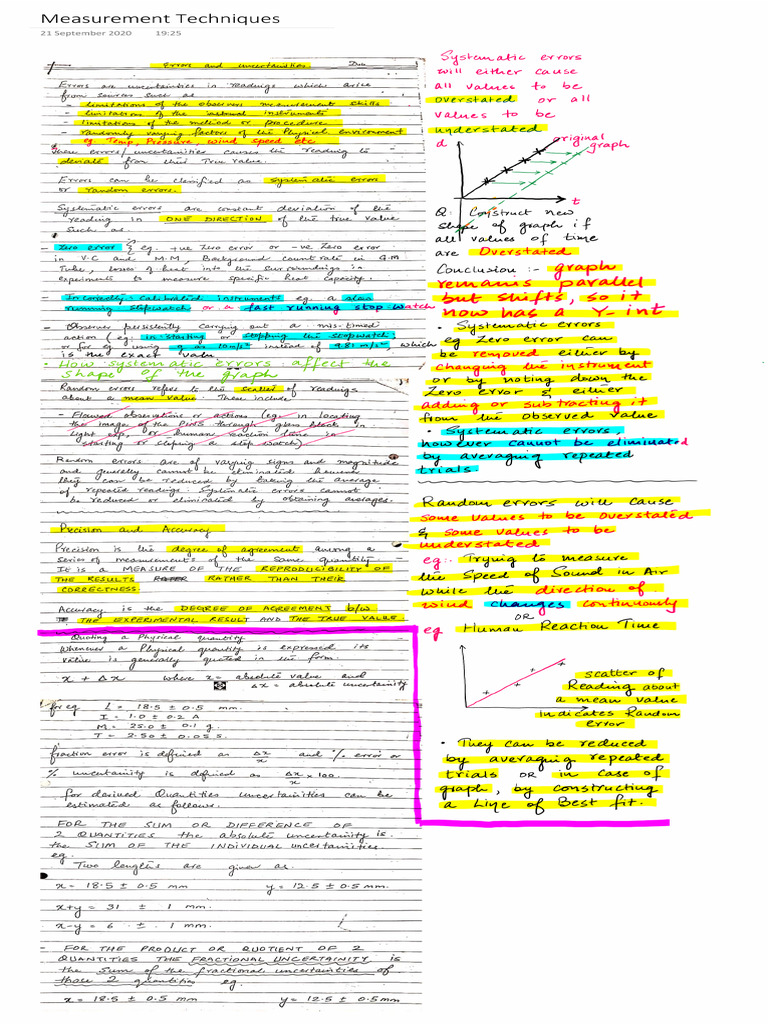 Measurement Techniques
21 September 2020 19:25
Errors and uncertainties.
Errors are uncertainties in readings which arise
from sources such as
- limitations of the observers measurement skills
- limitations of the instrument
- limitations of the method or procedure
- randomly varying factors of the Physical Environment
eg Temp, Pressure, wind speed etc
These errors/uncertainties causes the reading to
deviate from their True value.
Errors can be classified as systematic error
or random errors.
Systematic errors are constant deviation of the
reading in ONE DIRECTION of the true value
such as.
- Zero error eg. +ve Zero error or -ve Zero error
in V.C and M.M, Background count rate in G.M
Tube, losses of heat into the surroundings in
experiments to measure specific heat capacity.
- Incorrectly calibrated instruments eg. a slow
running stopwatch or a fast running stop watch
- Observer persistently carrying out a mis-timed
action (eg. in starting or stopping the stopwatch
or for eg using as 10ms⁻² instead of 9.81 ms⁻², which
is the exact value.
• How systematic errors affect the
shape of the graph
Random errors refers to the scatter of readings
about a mean value. These include
- Flawed observations or actions (eg. in locating
the image of the pins through glass block in
light exp, or human reaction time in
starting or stopping a stop watch)
Random errors are of varying signs and magnitude
and generally cannot be eliminated however
they can be reduced by taking the average
of repeated readings. Systematic errors cannot
be reduced or eliminated by obtaining averages.
Precision and Accuracy
Precision is the degree of agreement among a
series of measurements of the same quantity -
It is a MEASURE OF THE REPRODUCIBILITY OF
THE RESULTS RATHER THAN THEIR
CORRECTNESS.
Accuracy is the DEGREE OF AGREEMENT b/w
THE EXPERIMENTAL RESULT AND THE TRUE VALUE.
Quoting a Physical quantity
Whenever a Physical quantity is expressed its
value is generally quoted in the form.
x + Δx where x = absolute value and
Δx = absolute uncertainity
for eg L = 18.5 ± 0.5 mm.
I = 1.0 ± 0.2 A
M = 25.0 ± 0.1 g.
T = 2.50 ± 0.05 s.
fraction error is defined as Δx/x and % error or
% uncertainity is defined as Δx/x × 100.
for derived Quantities uncertainities can be
estimated as follows.
FOR THE SUM OR DIFFERENCE OF
2 QUANTITIES the absolute uncertainity is.
the SUM OF THE INDIVIDUAL uncertainities.
eg.
Two lengths are given as.
x = 18.5 ± 0.5 mm y = 12.5 ± 0.5 mm.
x+y = 31 ± 1 mm.
x-y = 6 ± 1 mm.
- FOR THE PRODUCT OR QUOTIENT OF 2
QUANTITIES THE FRACTIONAL UNCERTAINITY is
the sum of the fractional uncertainities of
those 2 quantities eg.
x = 18.5 ± 0.5 mm y = 12.5 ± 0.5mm
Systematic errors
will either cause
all values to be
overstated or all
values to be
understated
d
original
graph
t
Q: Construct new
shape of graph if
all values of time
are Overstated
Conclusion :- graph
remanis parallel
but shifts, so it
now has a Y-int
• Systematic errors
eg Zero error can
be removed either by
changing the instrument
or by noting down the
Zero error & either
adding or subtracting it
from the observed value
• Systematic errors,
however cannot be eliminated
by averaging repeated
trials.
Random errors will cause
some values to be overstated
& some values to be
understated
eg:. Trying to measure
the Speed of Sound in Air
while the direction of
wind changes continuously
OR
eg Human Reaction Time
scatter of
Reading about
a mean value
indicates Random
error
• They can be reduced
by averaging repeated
trials OR in case of
graph, by constructing
a Line of Best fit.